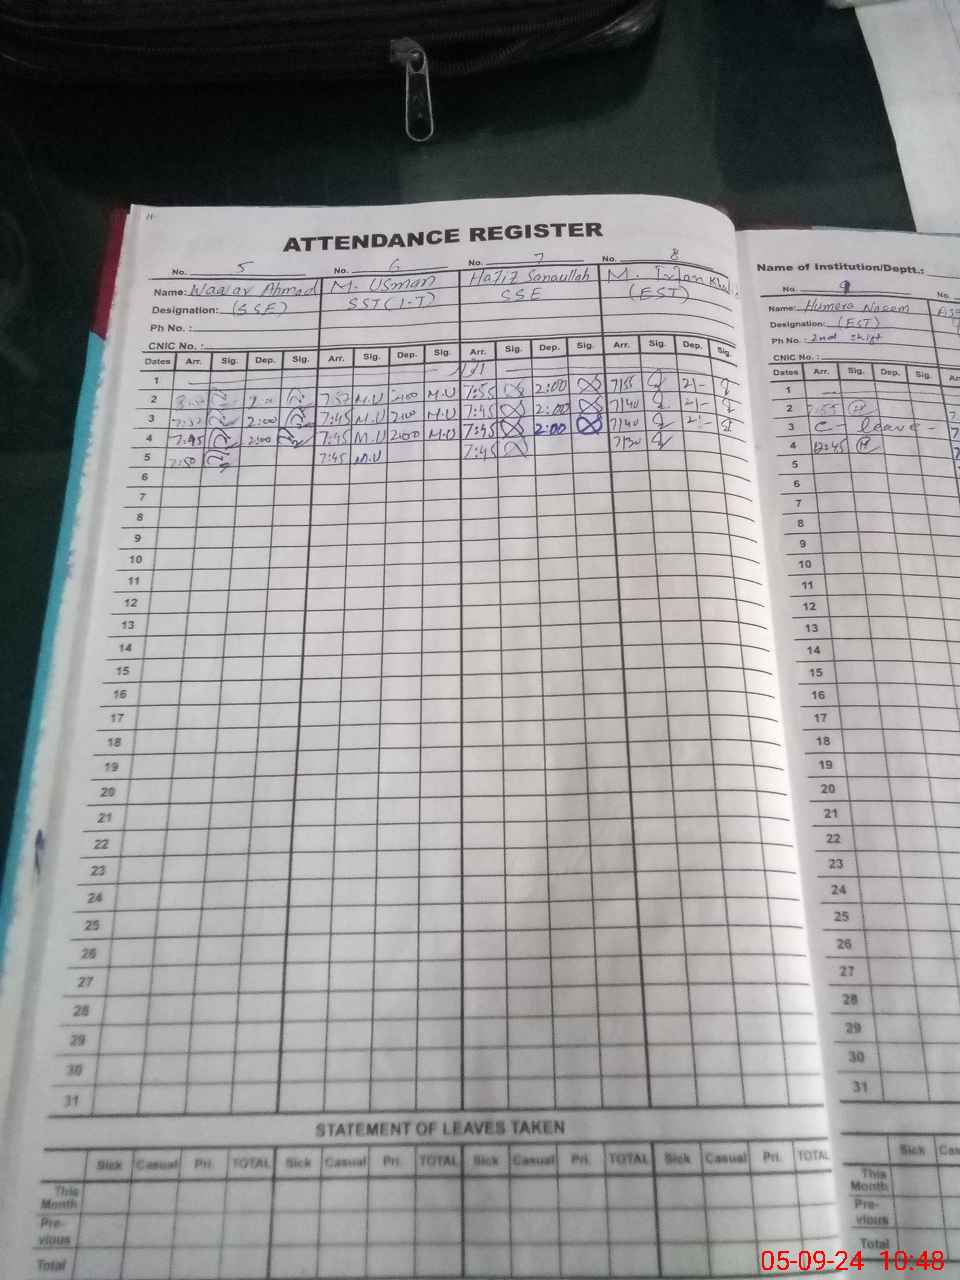 ATTENDANCE REGISTER
No. 5 No. 6 No. 7 No. 8
Name: Waqar Ahmad M. Usman Hafiz Sanaullah M. Irfan
Designation: (SSE) SST (I.T) SSE (EST)
Ph No. :
CNIC No. :
Dates Arr. Sig. Dep. Sig. Arr. Sig. Dep. Sig. Arr. Sig. Dep. Sig. Arr. Sig. Dep. Sig.
1
2 7:52 M.U 2:00 M.U 7:55 2:00 7/55 2/-
3 7:52 2:00 7:45 M.U 2:00 M.U 7:45 2:00 7/40 2/-
4 7:45 2:00 7:45 M.U 2:00 M.U 7:45 2:00 7/40 2/-
5 7:50 7:45 M.U 7:45 7/30
6
7
8
9
10
11
12
13
14
15
16
17
18
19
20
21
22
23
24
25
26
27
28
29
30
31
STATEMENT OF LEAVES TAKEN
Sick Casual Pri. TOTAL Sick Casual Pri. TOTAL Sick Casual Pri. TOTAL Sick Casual Pri. TOTAL
This Month
Pre-vious
Total
Name of Institution/Deptt.:
No. 9 No.
Name: Humera Naeem
Designation: (EST)
Ph No. : 2nd shift
CNIC No. :
Dates Arr. Sig. Dep. Sig.
1
2 7:55
3 C- leave -
4 12:45
5
6
7
8
9
10
11
12
13
14
15
16
17
18
19
20
21
22
23
24
25
26
27
28
29
30
31
Sick
This Month
Pre-vious
Total
05-09-24 10:48